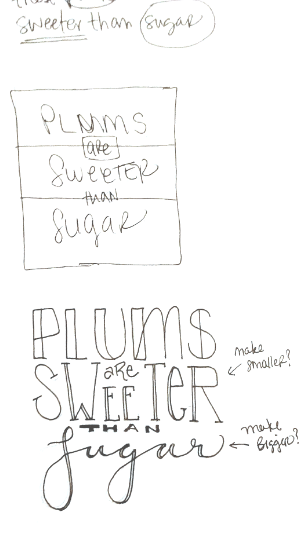 sweeter than sugar
PLUMS
are
SWEETER
THAN
Sugar
PLUMS
make
smaller?
are
SWEETER
THAN
make
Bigger?
Sugar